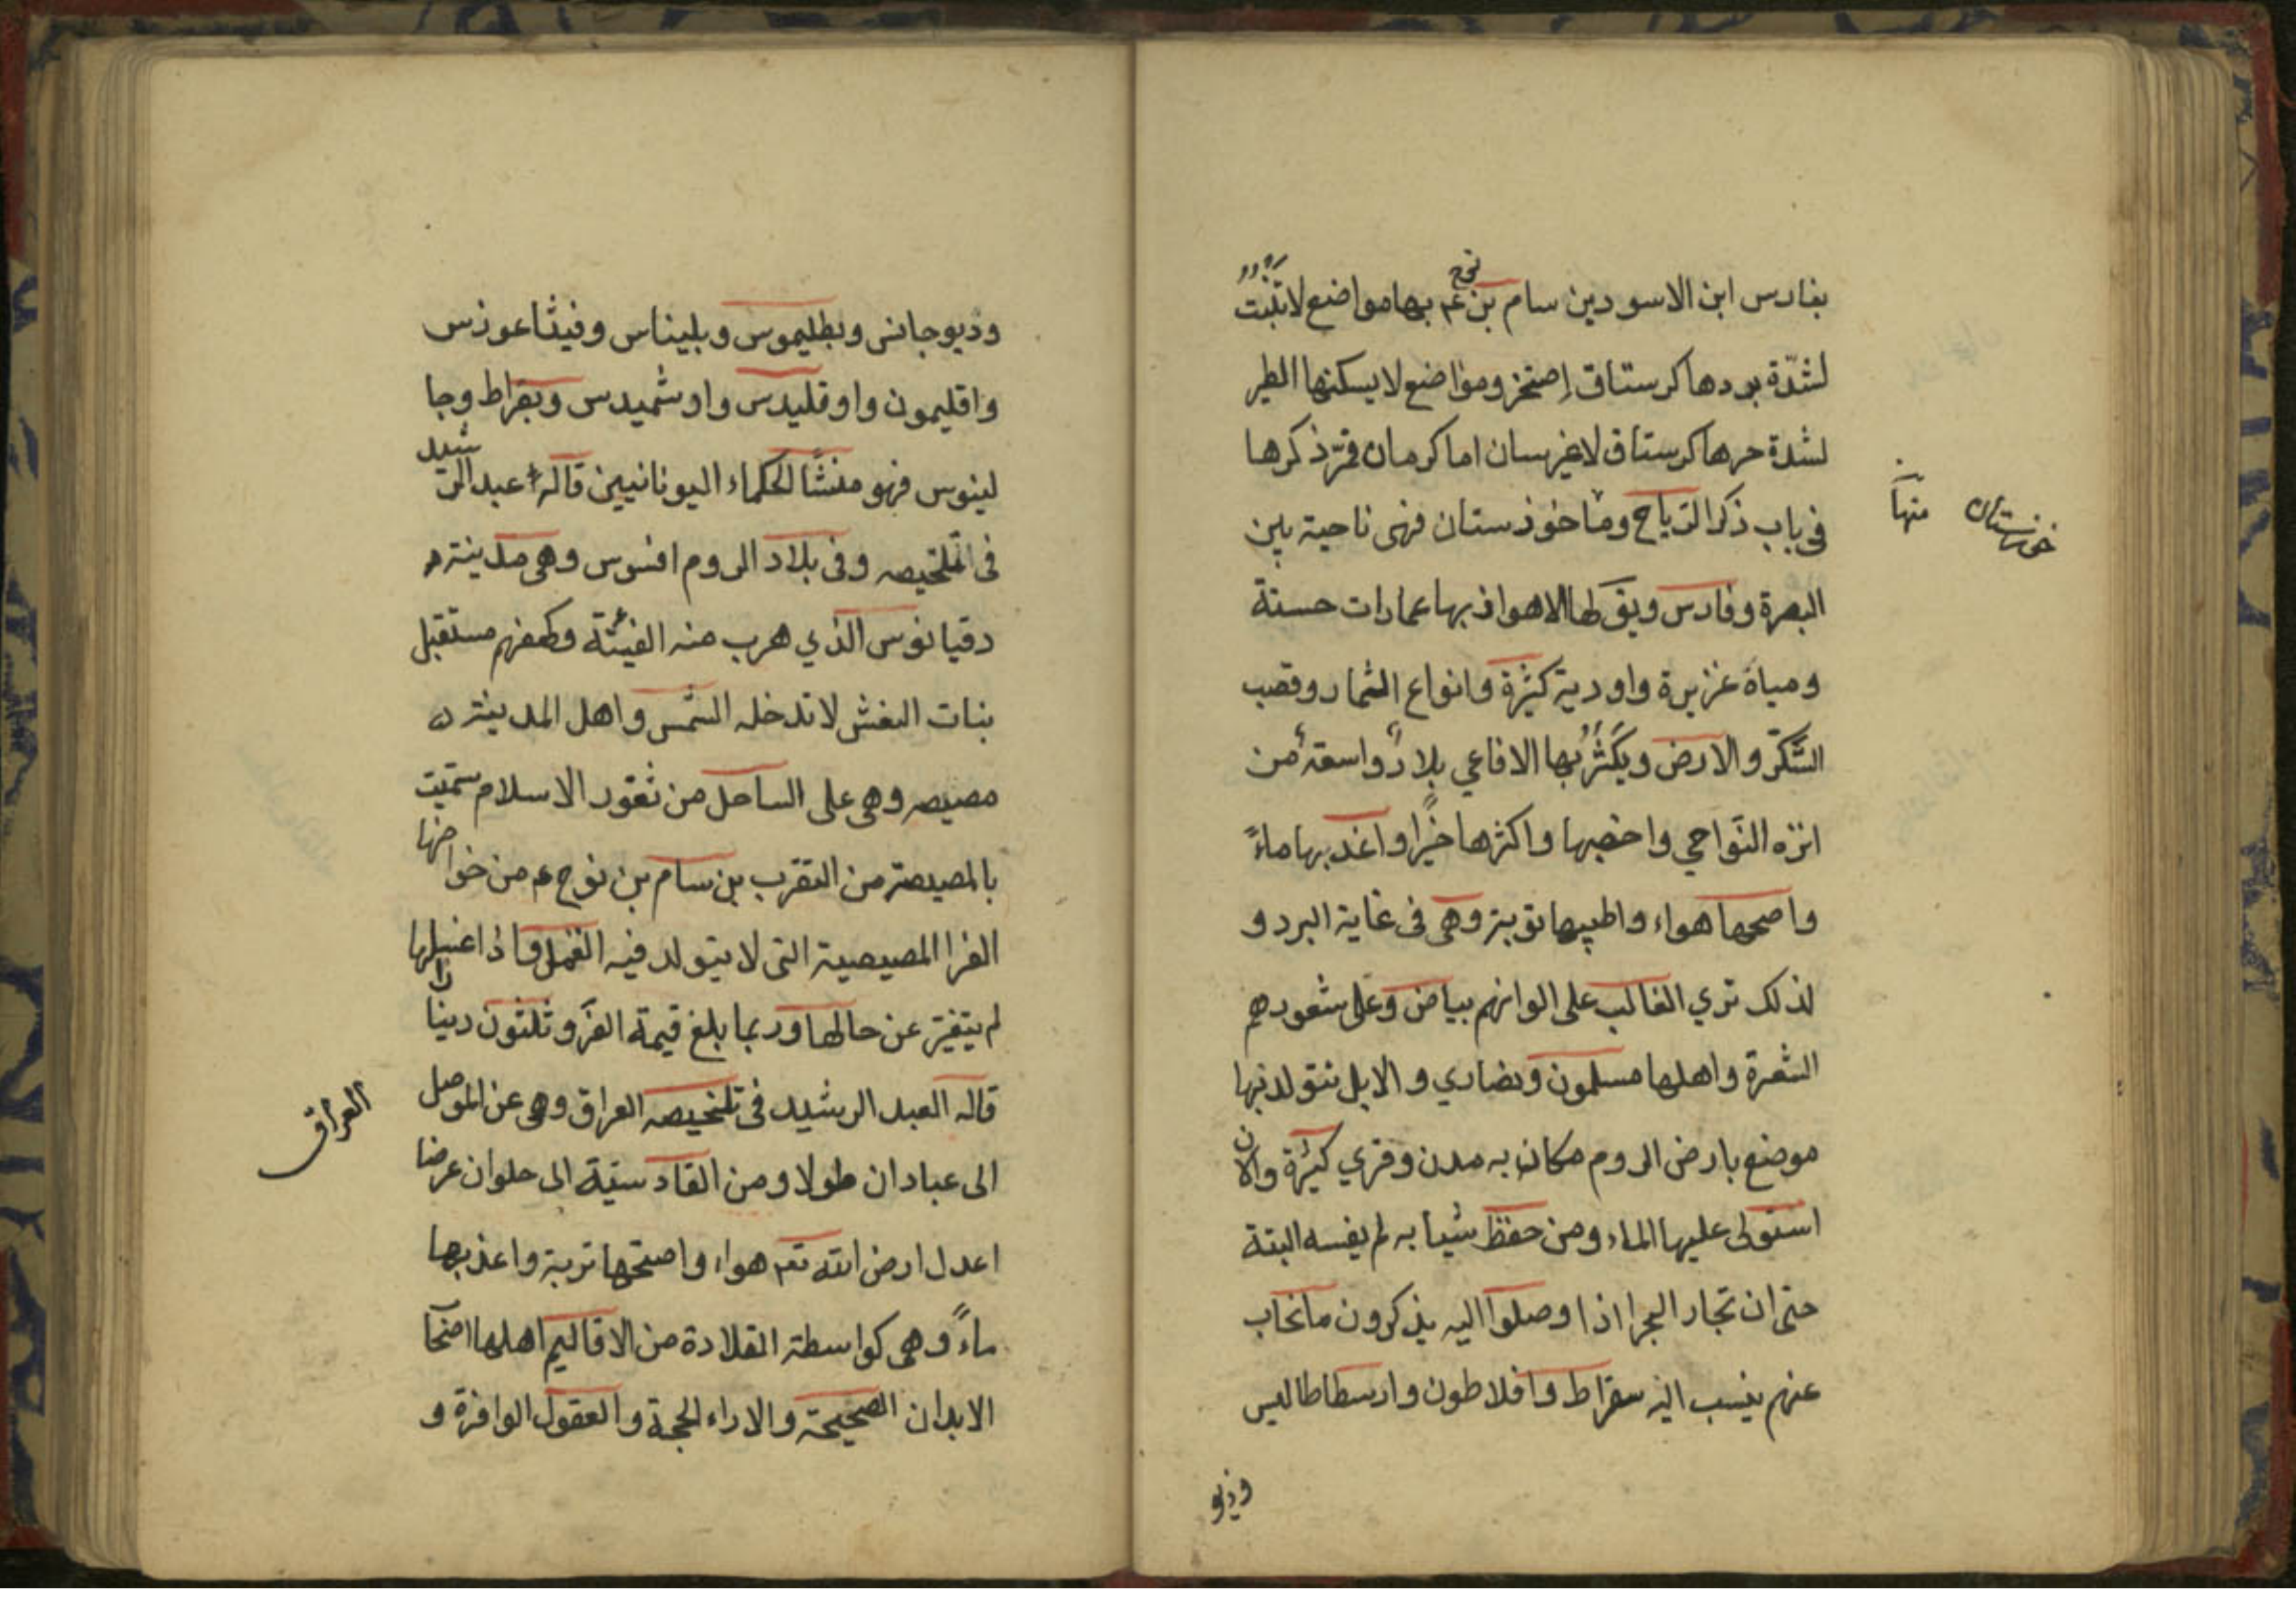 بفارس ابن الاسودين سام بن نوح عم بها مواضع لا تنبت
لشدّة بردها كرستاق إصتخز ومواضع لا يسكنها الطير
لشدة حرها كرستاق لاغرسان اما كرمان فمرّ ذكرها
في باب ذكر الرّياح وما خوذستان فهى ناحية بين
خوزستان منها
البصرة وفارس ويق لها الاهواز بها عمارات حسنة
ومياة غزيرة واودية كثيرة وانواع الثمار وقصب
السّكّر والارض ويكثر بها الافاعي بلادٌ واسعة من
انزه النّواحي واخصبها واكثرها خيرًا واعذبها ماءً
واصحها هواء واطيبها توبة وهى فى غاية البرد و
لذلك تري الغالب على الوانهم بياض وعلى شعورهم
الشعرة واهلها مسلمون ونضاري والابل نتولد بها
موضع بارض الروم مكان به مدن وقري كثيرة والان
استولى عليها الماء ومن حفظ شيأ به لم يفسه البتة
حتى ان تجار البحر اذا وصلوا اليه يذكرون ما نخاب
عنهم ينسب اليه سقراط وافلاطون وارسطاطاليس
وذيو
وذيوجانس وبطليموس وبليناس وفيثاعوذس
واقليمون واوقليدس واوشميدس وبقراط وجا
لينوس فهو منشًا الحكماء اليونانيين قاله عبد الرشيد
فى التلخيصه وفى بلاد الروم افسوس وهى مدينة
دقيانوس الذي هرب منه الفيئة وكهفهم مستقبل
بنات النغش لا تدخله الشمس واهل المدينة
مصيصه وهى على الساحل من ثغور الاسلام سمّيت
بالمصيصة من التقرب بن سام بن نوح عم من خواصها
الفرا المصيصية التى لا يتولد فيه القمل واذا غسلها
لم يتغيّر عن حالها وربما بلغ قيمة الفرو ثلثون دينارا
قاله العبد الرشيد فى تلخيصه العراق وهى عن الموصل
العراق
الى عبادان طولا ومن القادسيّة الى حلوان عرضا
اعدل ارض الله تعم هواء واصحها تربة واعذبها
ماءً وهى كواسطة القلادة من الاقاليم اهلها اصحا
الابدان الصحيحة والاراء الحجة والعقول الوافرة و